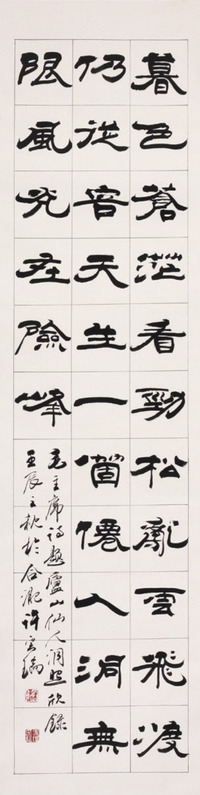 暮色蒼茫看勁松亂雲飛渡
仍從容天生一箇僊人洞無
限風光在險峰
毛主席詩題廬山仙人洞照欣錄
壬辰之秋於合肥許雲瑞